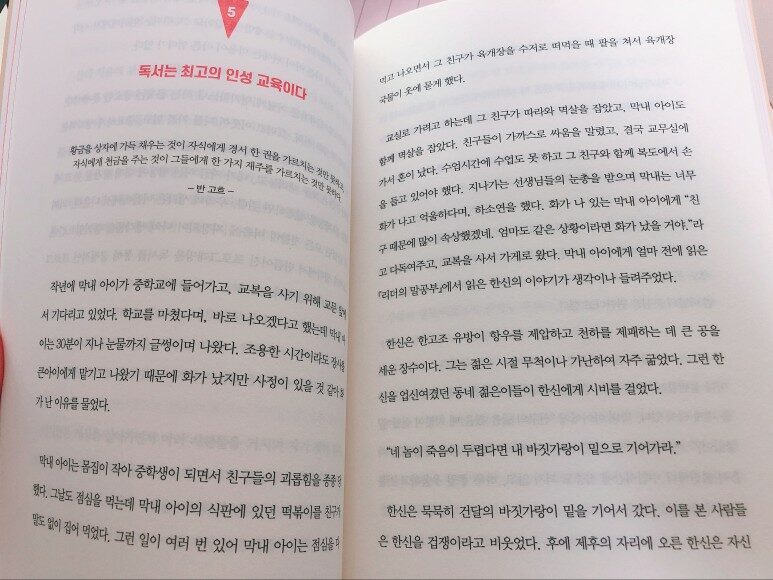 5
독서는 최고의 인성 교육이다
황금을 상자에 가득 채우는 것이 자식에게 경서 한 권을 가르치는 것만 못하고,
자식에게 천금을 주는 것이 그들에게 한 가지 재주를 가르치는 것만 못하다.
– 반 고흐 –
작년에 막내 아이가 중학교에 들어가고, 교복을 사기 위해 교문 앞에
서 기다리고 있었다. 학교를 마쳤다며, 바로 나오겠다고 했는데 막내 아
이는 30분이 지나 눈물까지 글썽이며 나왔다. 조용한 시간이라도 장사를
큰아이에게 맡기고 나왔기 때문에 화가 났지만 사정이 있을 것 같아 화
가 난 이유를 물었다.
막내 아이는 몸집이 작아 중학생이 되면서 친구들의 괴롭힘을 종종 당
했다. 그날도 점심을 먹는데 막내 아이의 식판에 있던 떡볶이를 친구가
말도 없이 집어 먹었다. 그런 일이 여러 번 있어 막내 아이는 점심을 다
먹고 나오면서 그 친구가 육개장을 수저로 떠먹을 때 팔을 쳐서 육개장
국물이 옷에 묻게 했다.
교실로 가려고 하는데 그 친구가 따라와 멱살을 잡았고, 막내 아이도
함께 멱살을 잡았다. 친구들이 가까스로 싸움을 말렸고, 결국 교무실에
가서 혼이 났다. 수업시간에 수업도 못 하고 그 친구와 함께 복도에서 손
을 들고 있어야 했다. 지나가는 선생님들의 눈총을 받으며 막내는 너무
화가 나고 억울하다며, 하소연을 했다. 화가 나 있는 막내 아이에게 “친
구 때문에 많이 속상했겠네. 엄마도 같은 상황이라면 화가 났을 거야.”라
고 다독여주고, 교복을 사서 가게로 왔다. 막내 아이에게 얼마 전에 읽은
『리더의 말공부』에서 읽은 한신의 이야기가 생각이나 들려주었다.
한신은 한고조 유방이 항우를 제압하고 천하를 제패하는 데 큰 공을
세운 장수이다. 그는 젊은 시절 무척이나 가난하여 자주 굶었다. 그런 한
신을 업신여겼던 동네 젊은이들이 한신에게 시비를 걸었다.
“네 놈이 죽음이 두렵다면 내 바짓가랑이 밑으로 기어가라.”
한신은 묵묵히 건달의 바짓가랑이 밑을 기어서 갔다. 이를 본 사람들
은 한신을 겁쟁이라고 비웃었다. 후에 제후의 자리에 오른 한신은 자신